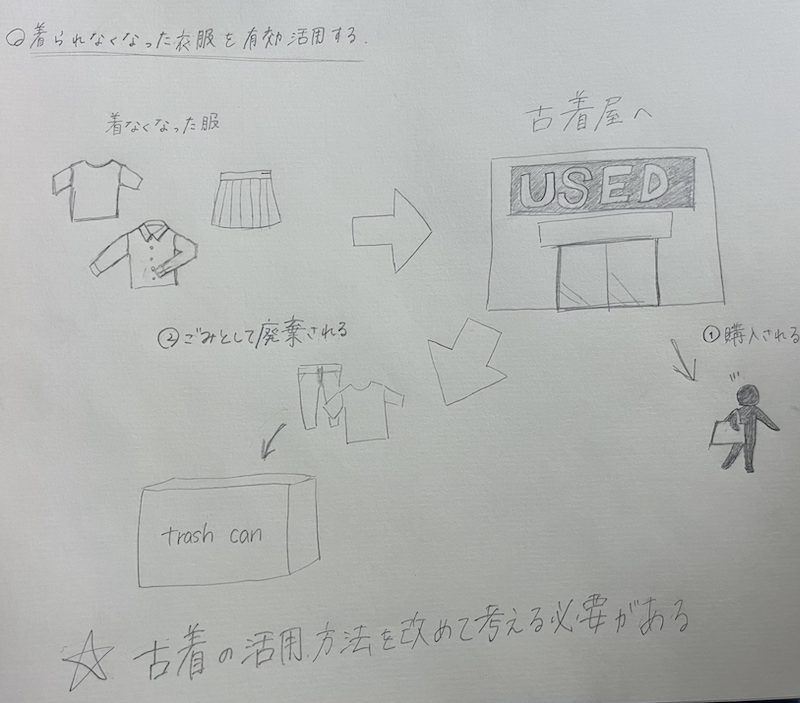 ○着られなくなった衣服を有効活用する.
着なくなった服
古着屋へ
USED
②ごみとして廃棄される
①購入される
trash can
☆古着の活用方法を改めて考える必要がある